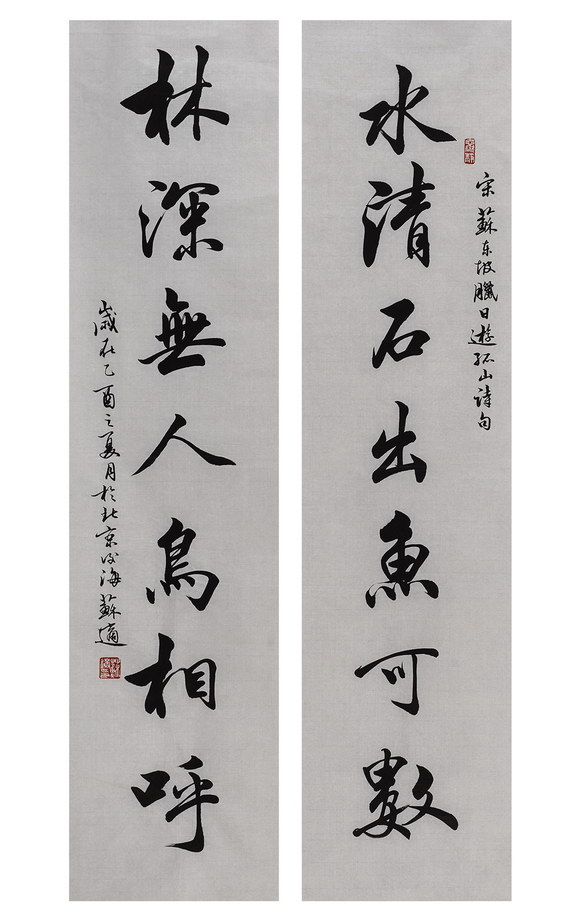 宋蘇东坡臘日遊孤山诗句
水清石出魚可數
林深無人鳥相呼
歲在乙酉之夏月於北京后海蘇適